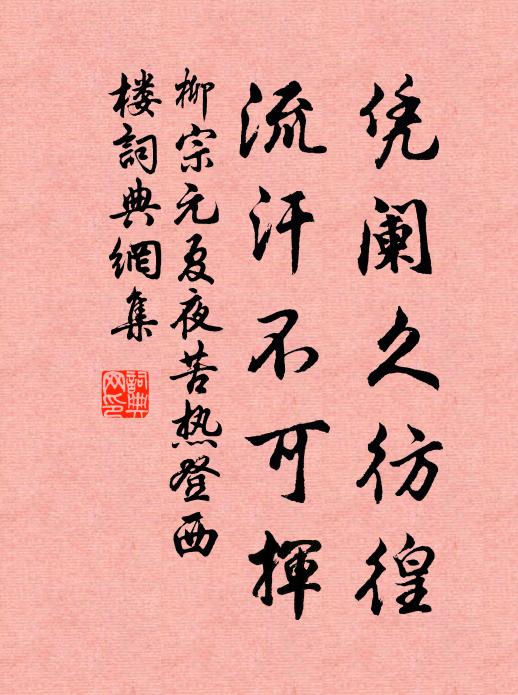 凭阑久彷徨
流汗不可揮
柳宗元夏夜苦热登西
楼詞典網集
詞典
网印